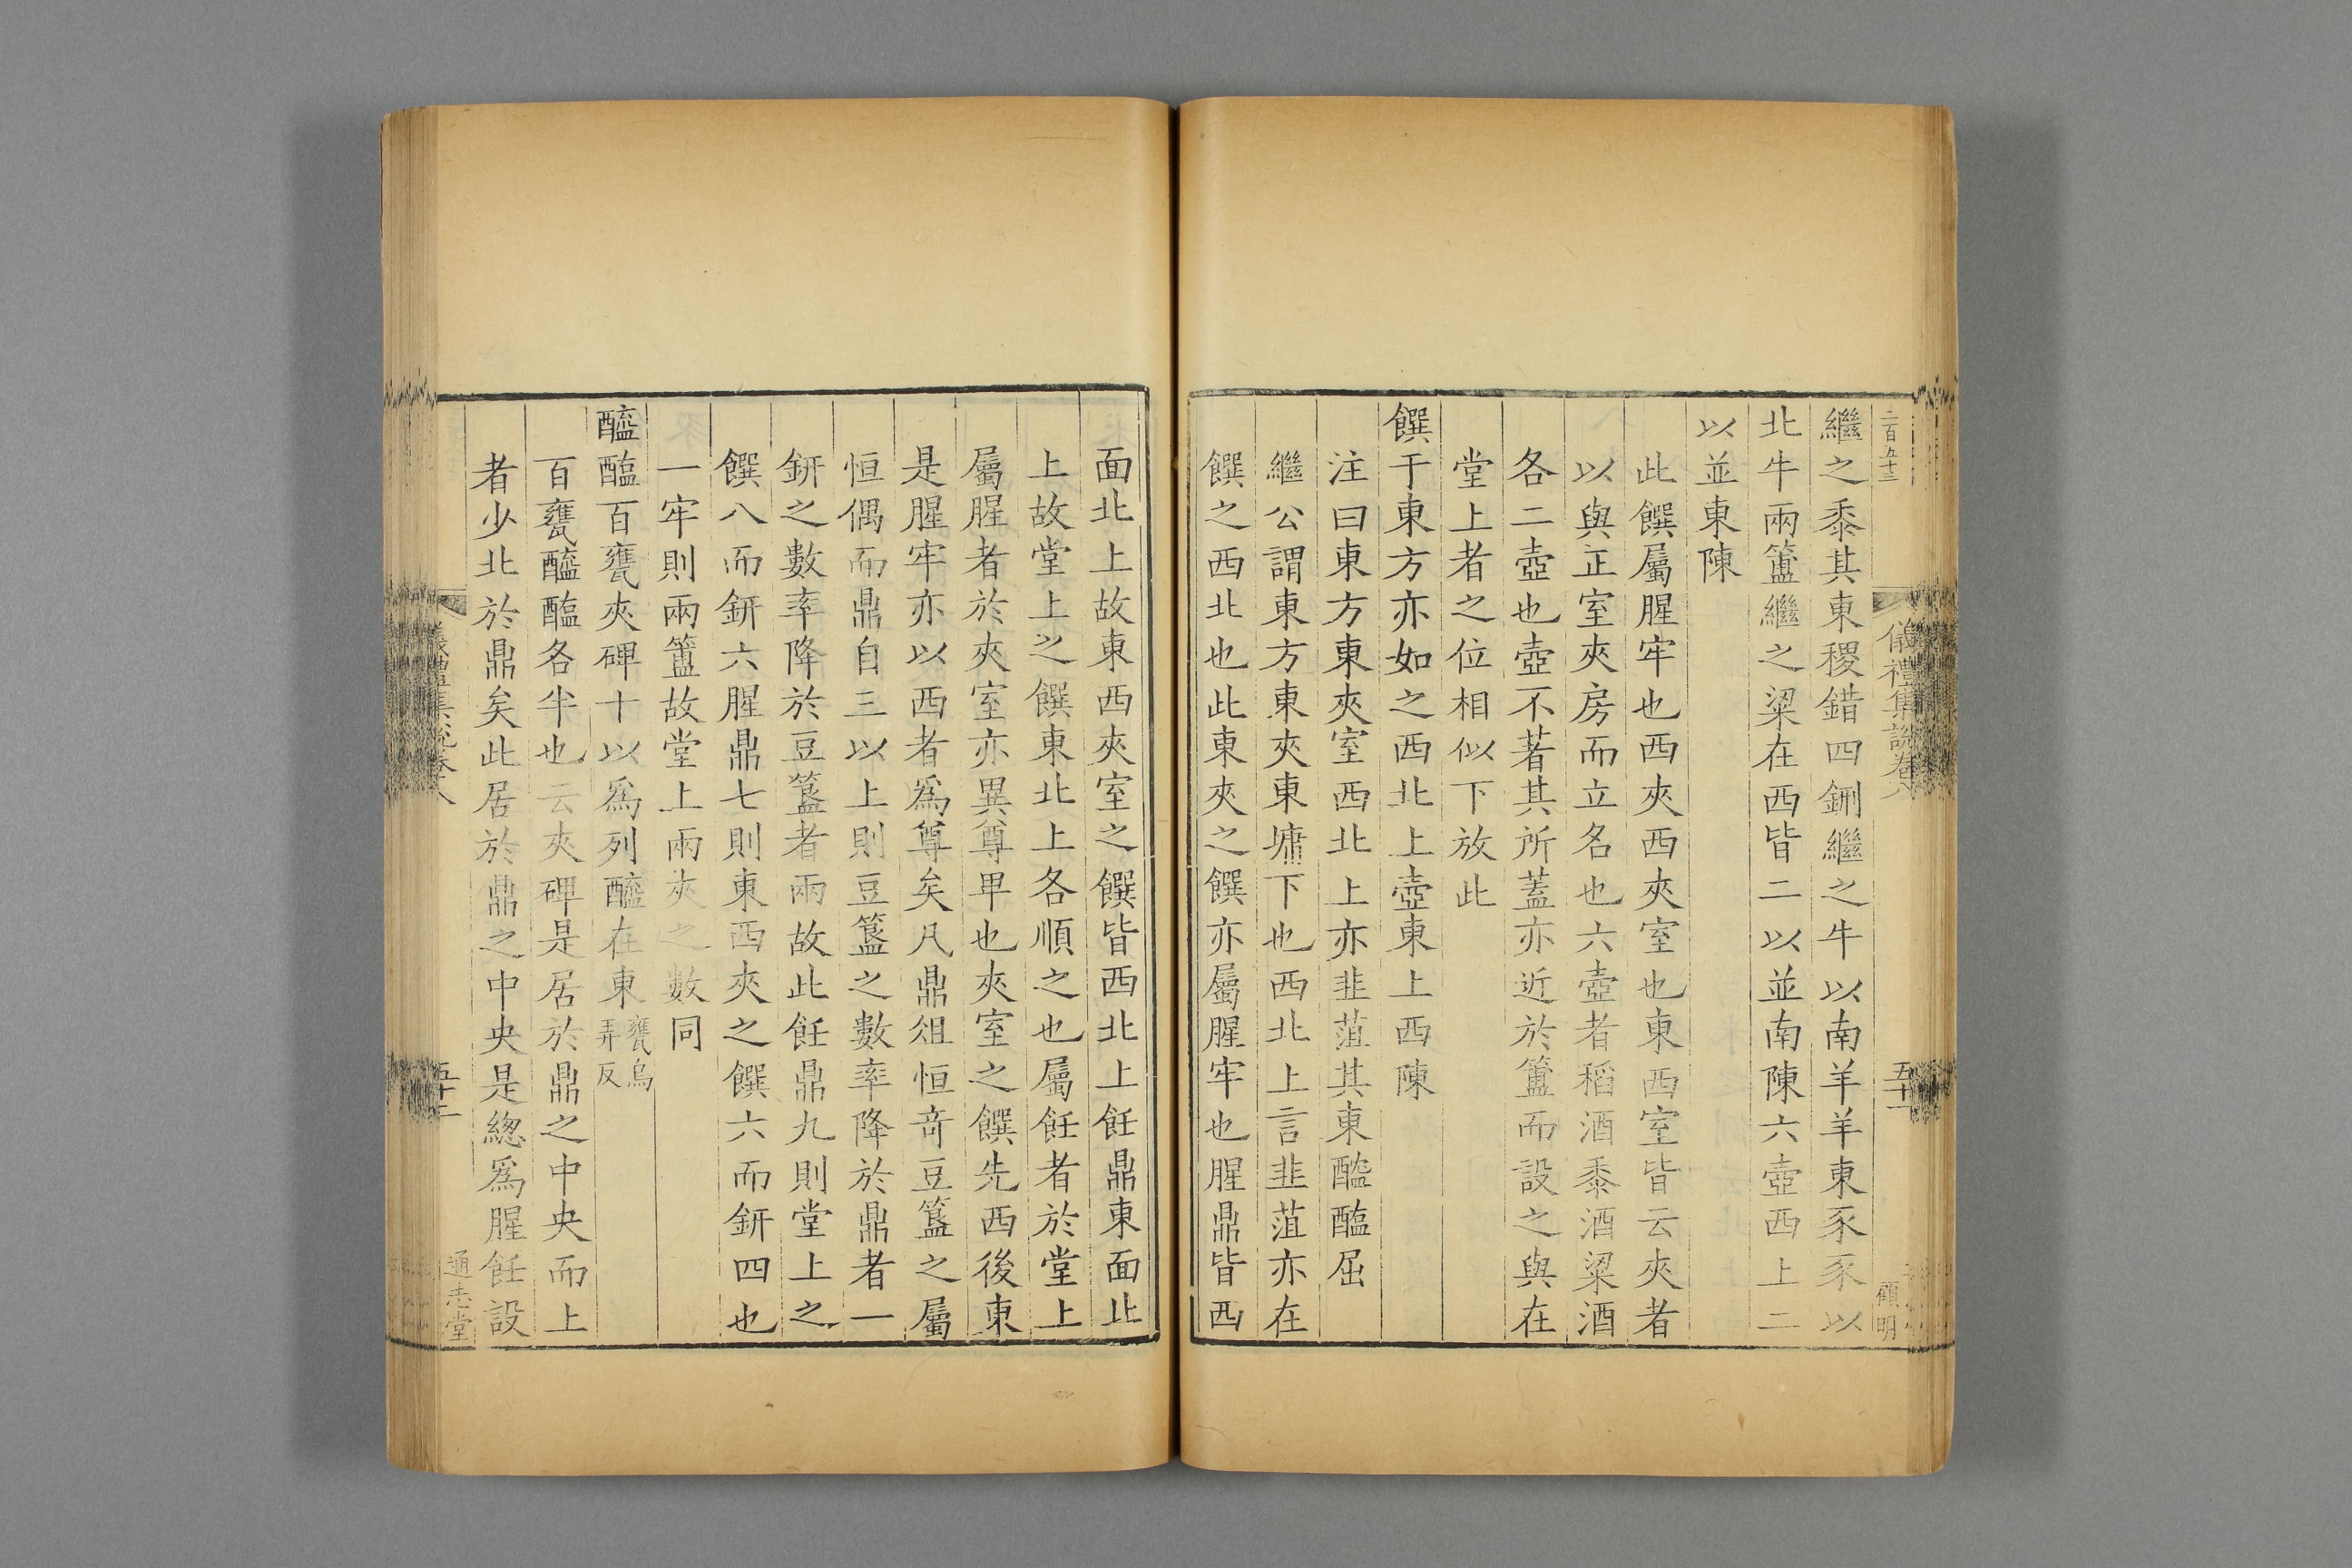 二百五十三
儀禮集說卷八
五十一
顧明
繼之黍其東稷錯四鉶繼之牛以南羊羊東豕豕以
北牛兩簠繼之粱在西皆二以並南陳六壺西上二
以並東陳
此饌屬腥牢也西夾西夾室也東西室皆云夾者
以與正室夾房而立名也六壺者稻酒黍酒粱酒
各二壺也壺不著其所蓋亦近於簠而設之與在
堂上者之位相似下放此
饌于東方亦如之西北上壺東上西陳
注曰東方東夾室西北上亦韭菹其東醓醢屈
繼公謂東方東夾東墉下也西北上言韭菹亦在
饌之西北也此東夾之饌亦屬腥牢也腥鼎皆西
面北上故東西夾室之饌皆西北上飪鼎東面北
上故堂上之饌東北上各順之也屬飪者於堂上
屬腥者於夾室亦異尊卑也夾室之饌先西後東
是腥牢亦以西者爲尊矣凡鼎俎恒奇豆簋之屬
恒偶而鼎自三以上則豆簋之數率降於鼎者一
鉶之數率降於豆簋者兩故此飪鼎九則堂上之
饌八而鉶六腥鼎七則東西夾之饌六而鉶四也
一牢則兩簠故堂上兩夾之數同
醯醢百罋夾碑十以爲列醯在東罋烏弄反
百罋醯醢各半也云夾碑是居於鼎之中央而上
者少北於鼎矣此居於鼎之中央是總爲腥飪設
儀禮集說卷八
五十二
通志堂